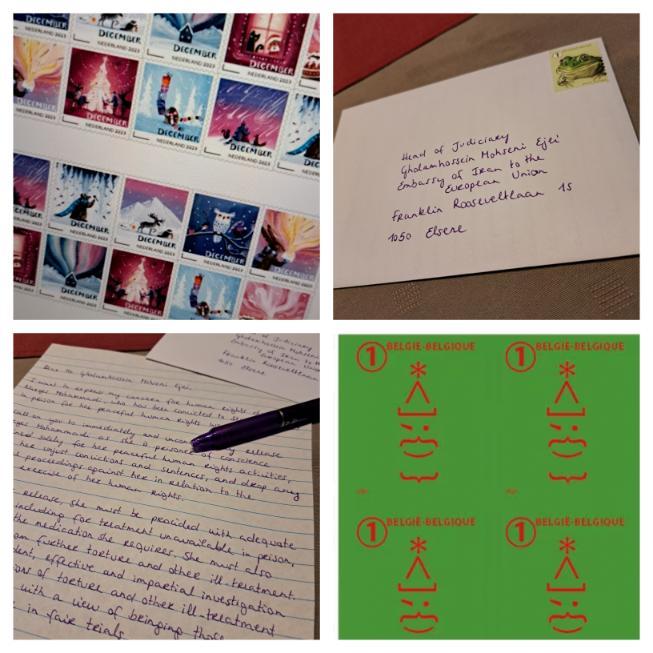 DECEMBER
NEDERLAND 2023
DECEMBER
NEDERLAND 2023
DECEMBER
NEDERLAND 2023
DECEMBER
NEDERLAND 2023
DECEMBER
NEDERLAND 2023
DECEMBER
NEDERLAND 2023
DECEMBER
NEDERLAND 2023
DECEMBER
NEDERLAND 2023
DECEMBER
NEDERLAND 2023
DECEMBER
NEDERLAND 2023
DECEMBER
DECEMBER
DECEMBER
Head of Judiciary
Gholamhossein Mohseni Ejei
Embassy of Iran to the
European Union
Franklin Rooseveltlaan 15
1050 Elsene
Gholamhossein Mohseni
Embassy of Iran to the
European Union
Franklin Rooseveltlaan
1050 Elsene
Gholamhossein Mohseni Ejei,
I want to express my concern for human rights
Mohammadi, who has been convicted to
in prison for her peaceful human rights
call on you to immediately and release
Mohammadi as she is a prisoner of conscience
solely for her peaceful human rights activities,
her unjust convictions and sentences, and drop any
proceedings against her in relation to the
exercise of her human rights.
release, she must be provided with adequate
including for treatment unavailable in prison,
the medication she requires. She must also
from further torture and other ill-treatment.
effective and impartial investigation
of torture and other ill-treatment
with a view of bringing those
in fair trials
1 BELGIË-BELGIQUE
1 BELGIË-BELGIQUE
1 BELGIË-BELGIQUE
1 BELGIË-BELGIQUE